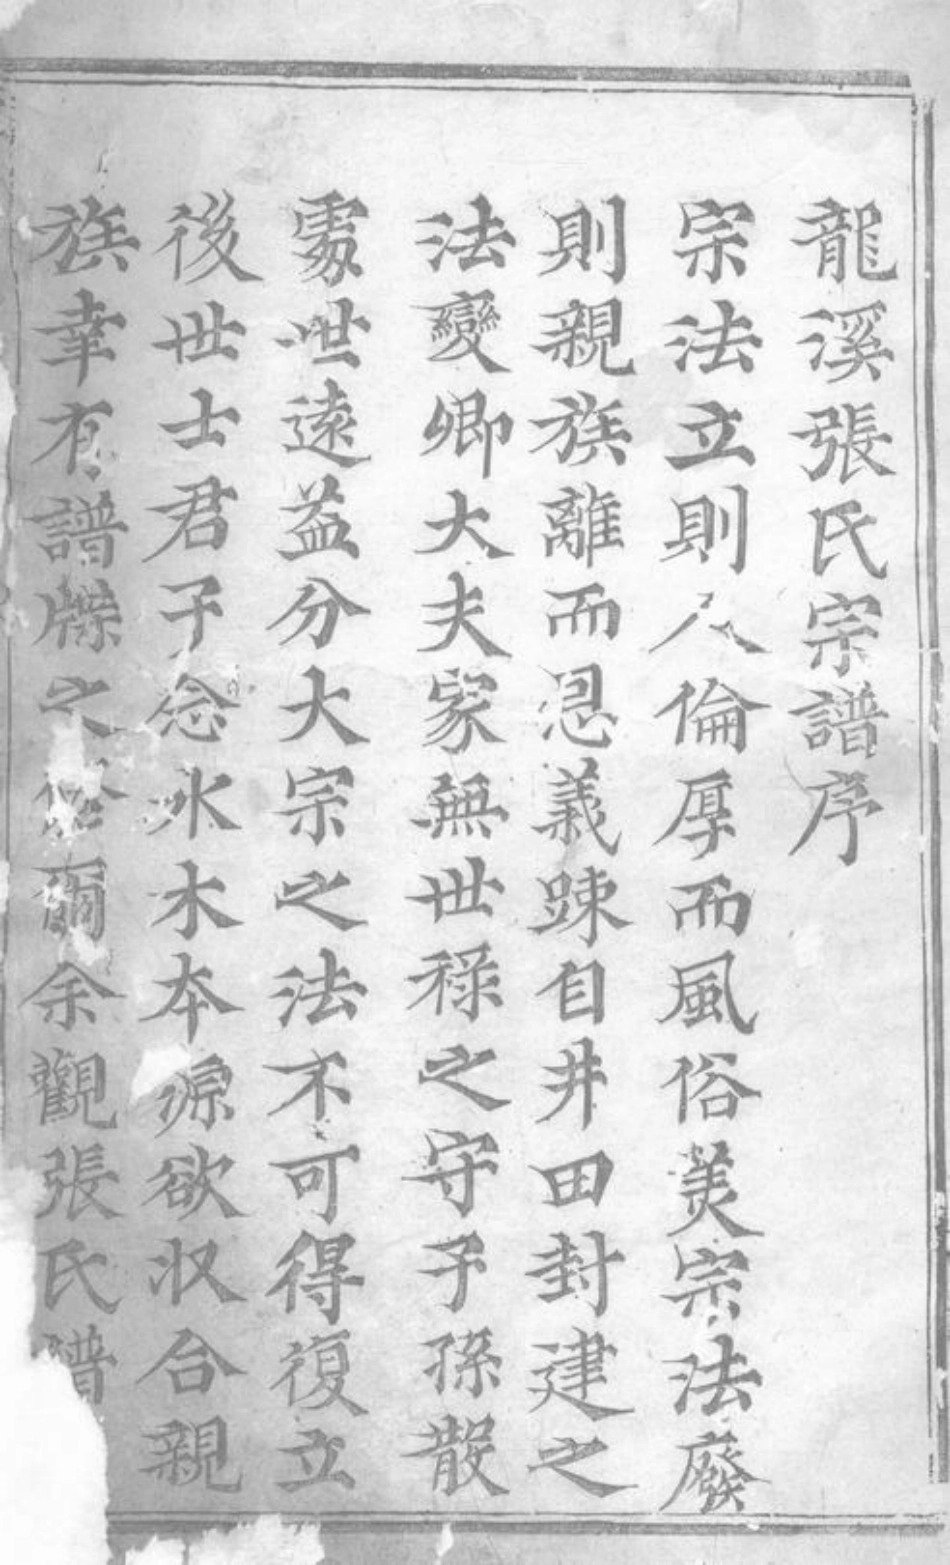 龍溪張氏宗譜序
宗法立則人倫厚而風俗美宗法廢
則親族離而恩義踈自井田封建之
法變卿大夫家無世祿之守子孫散
處世遠益分大宗之法不可得復立
後世士君子念水木本源欲収合親
族幸有譜牒之修爾余觀張氏譜